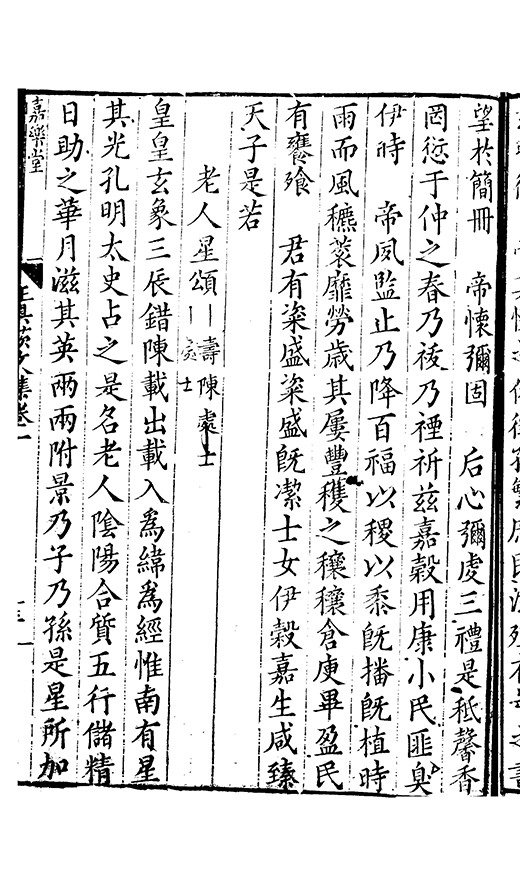 望於簡冊　帝懷彌固　后心彌虔三禮是秪馨香
罔愆于仲之春乃祓乃禋祈兹嘉穀用康小民匪臭
伊時　帝夙監止乃降百福以稷以黍旣播旣植時
雨而風穮蔉靡勞歲其屢豐穫之穰穰倉庾畢盈民
有饔飱　君有粢盛粢盛旣潔士女伊穀嘉生咸臻
天子是若
老人星頌｜｜壽陳處士
處士
皇皇玄象三辰錯陳載出載入爲緯爲經惟南有星
其光孔明太史占之是名老人陰陽合質五行儲精
日助之華月滋其英兩兩附景乃子乃孫是星所加
嘉樂堂
文集卷一